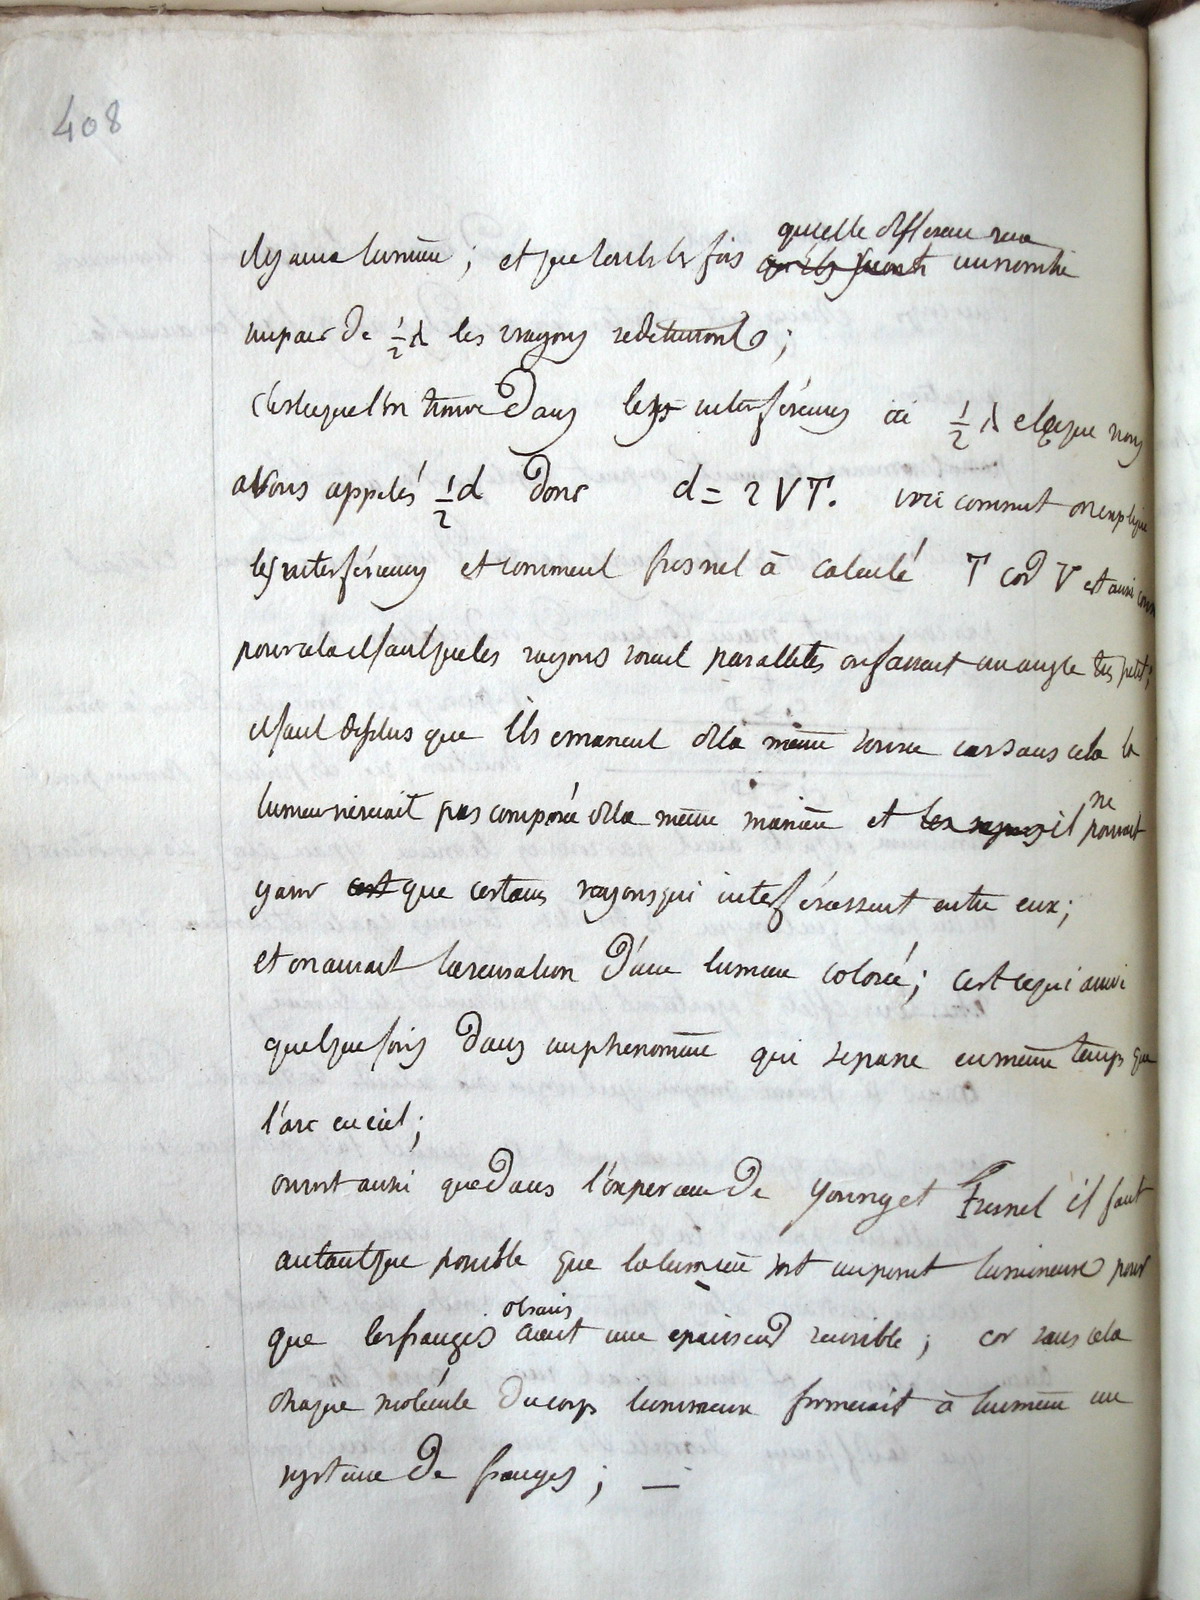 408
quelle difference sera
il y aura lumière ; et que toutes les fois qu'ils seront un nombre
impair de ½ λ les rayons se détruiront ;
c'est ce que l'on trouve dans les interférences ici ½ λ est ce que nous
avons appelés ½ d donc d = 2 V T. voici comment on explique
les interférences et comment fresnel à calculé T car V est aussi
pour cela il faut que les rayons soient parallèles ou fassent un angle très petit ;
il faut de plus que ils emanent de la même source car sans cela la
ne
lumière ne serait pas composée de la même manière et les rayons il pourrait
y avoir que certains rayons qui interférassent entre eux ;
et on aurait la sensation d'une lumière colorée ; c'est ce qui arrive
quelque fois dans un phenomène qui se passe en même temps que
l'arc en ciel ;
on voit aussi que dans l'experience de Young et Fresnel il faut
autant que possible que la lumière soit un point lumineux pour
que les franges aient une epaisseur sensible ; car sans cela
chaque molécule du corps lumineux formerait à lui même un
système de franges ; —